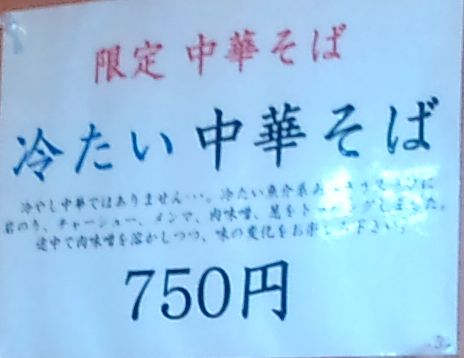 限定 中華そば
冷たい 中華そば
冷やし中華ではありません…。冷たい魚介系あっさりスープに
岩のり、チャーシュー、メンマ、肉味噌、葱をトッピングしました。
途中で肉味噌を溶かしつつ、味の変化をお楽しみ下さい。
750円